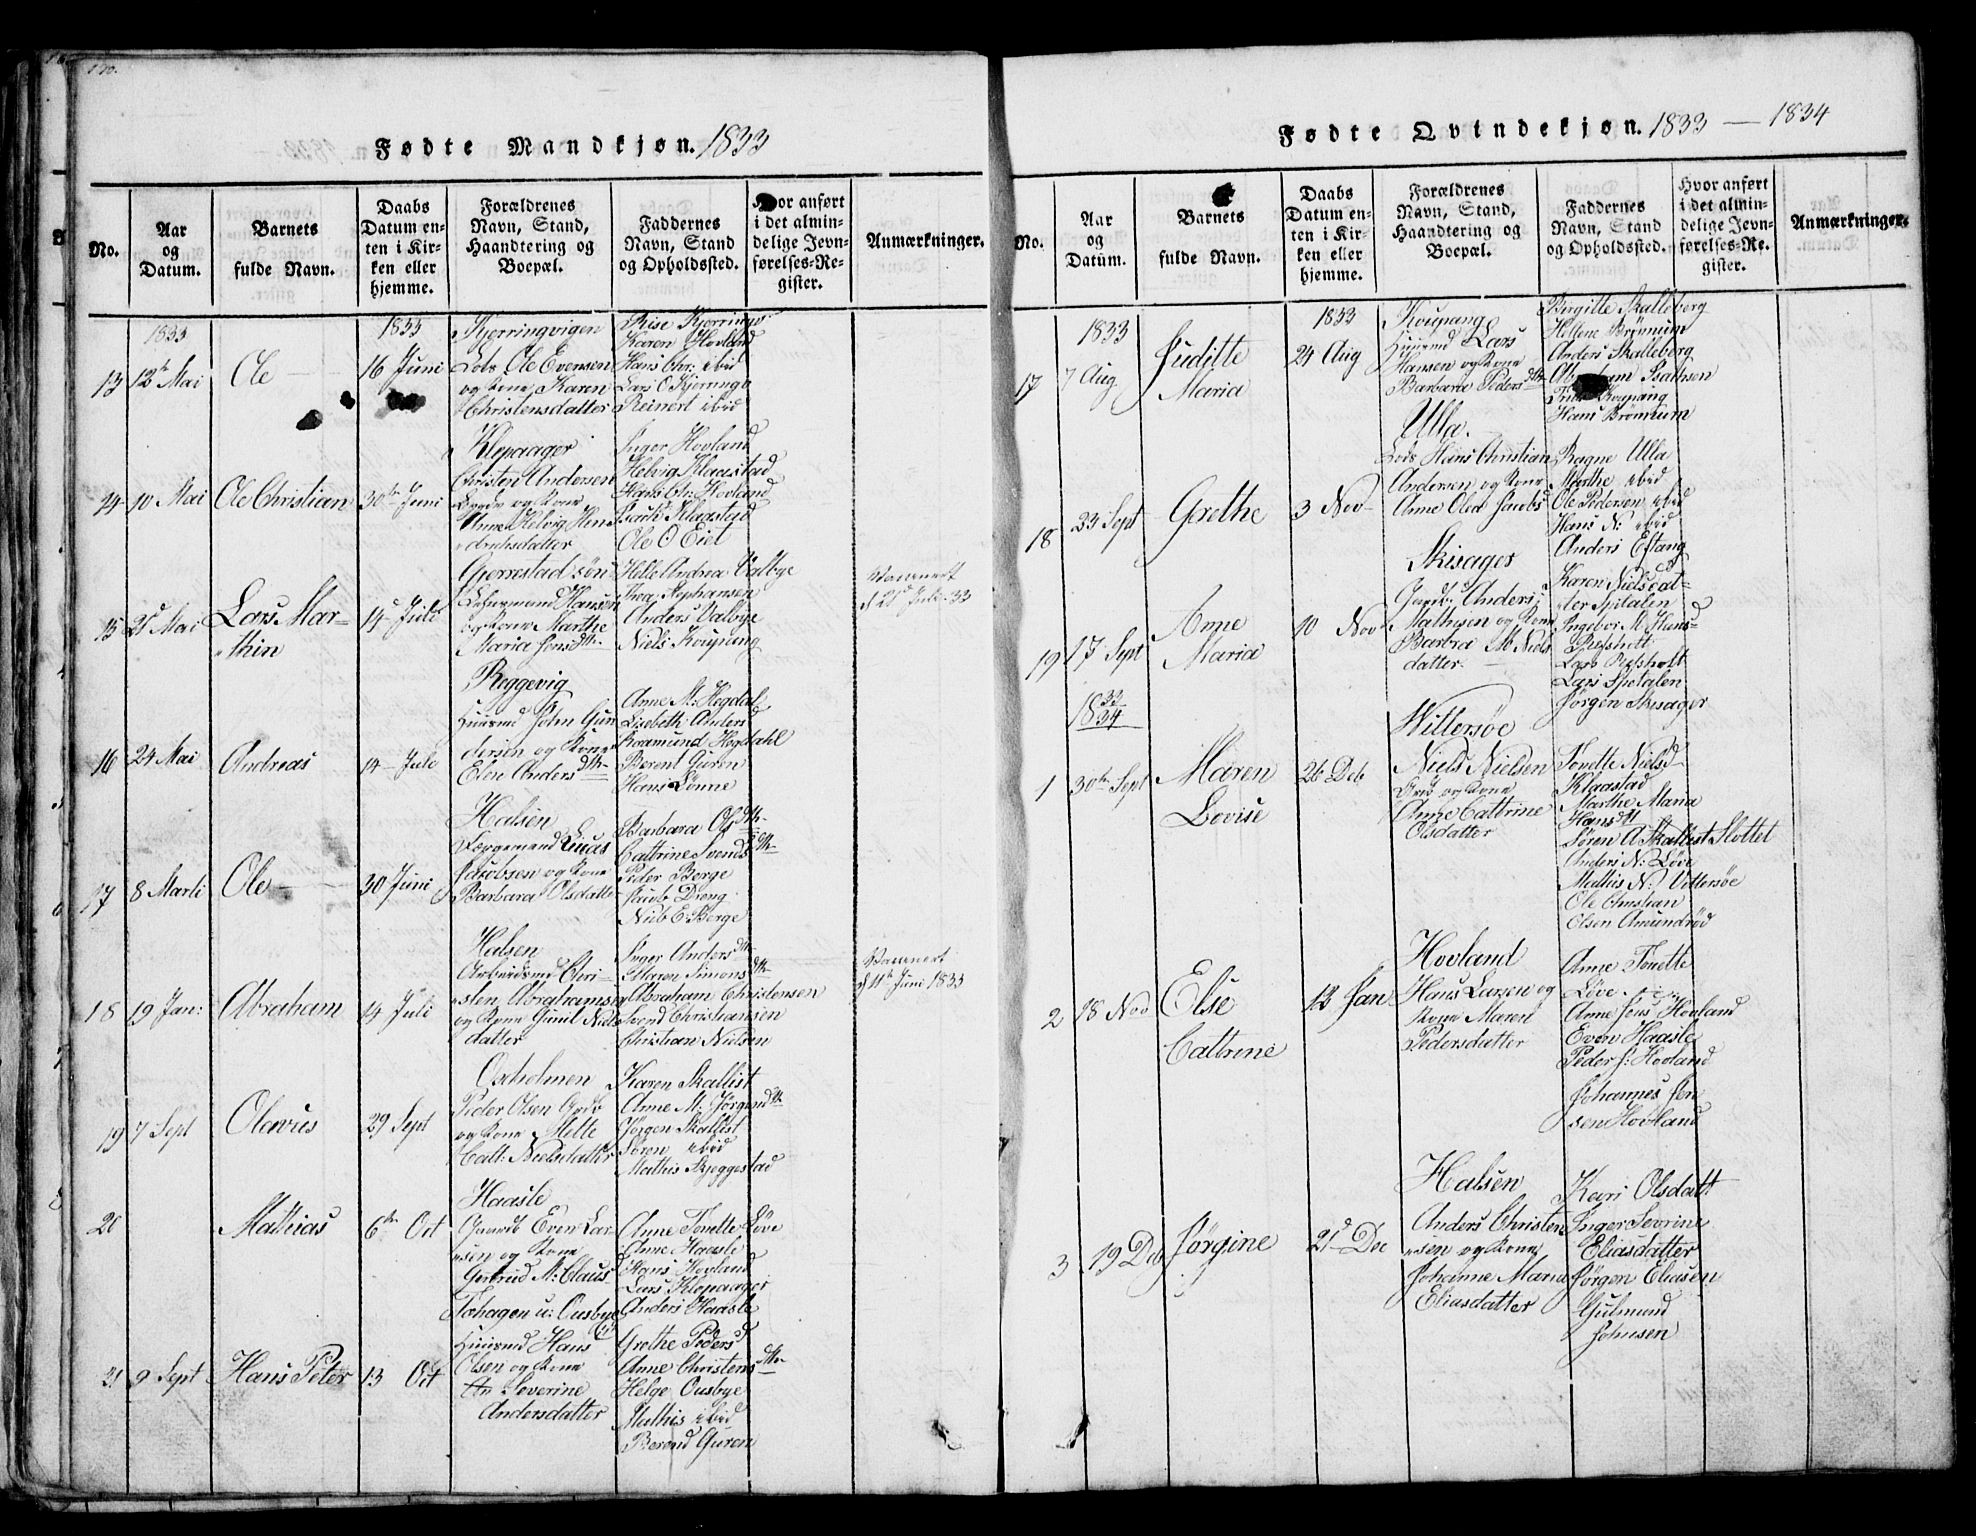 170.
Fødte Mandkjøn. 1833
No.
Aar
og
Datum.
Barnets
fulde Navn.
Daabs
Datum en-
ten i Kir-
ken eller
hjemme.
Forældrenes
Navn, Stand,
Haandtering og
Boepæl.
Faddernes
Navn, Stand
og Opholdssted.
Hvor anført
i det almin-
delige Jevn-
førelses-Re-
gister.
Anmærkninger.
1833
13
12te Mai
Ole
1833
16 Juni
Kjerringvigen
Lods Ole Evensen
og Kone Karen
Christensdatter
Rise Kjerringv:
Karen Hovland
Hans Chr: ibid
Lars O Kjerringv
Reinert ibid
14
10 Mai
Ole Christian
30te Juni
Klepaager
Christen Andersen
og Kone
Anne Helvig Hen-
driksdatter
Inger Hovland
Helvig Klaastad
Hans Chr: Hovland
Isach Klaastad
Ole O Eiet
15
21d Mai
Lars Mar-
thin
14d Juli
Gjerrestad
Hansen
og Kone Marthe
Maria Jensdtr
Helle Andrea Valbye
Thea Stephansen
Anders Valbye
Niels Koupang
Vaccineret
d 21d Juli 33
16
24 Mai
Andreas
14 Juli
Roggevig
Huusmd John Gun
dersen og Kone
Elen Andersdtr
Anne M: Hegdal
Lisebeth Andersd
Roxmund Hegdahl
Berent Guren
Hans Lønne
17
8 Marti
Ole
30 Juni
Halsen
Færgemand Lucas
Jacobsen og Kone
Barbara Olsdatte
Barbara Olsdtr
Cathrine Svendsdtr
Peder Berge
Jacob Dreng
Niels E Berge
18
19 Jan:
Abraham
14 Juli
Halsen
Arbeidsmd Chri-
sten Abrahamsen
og Kone Gunil Niels
datter
Inger Andersdtr
Maren Simonsdtr
Abraham Christensen
Svend Christiansen
Christian Nielsen
Vaccineret
d 11te Juni 1833
19
7 Sept
Olavus
29 Sept
Oxholmen
Peder Olsen Grdb
og Kone Mette
Cath: Nielsdatter
Karen Skallist
Anne M: Jørgensdtr
Jørgen Skallist
Søren ibid
Mathis Skjeggestad
20
Mathias
6te Oct
Haasle
Gaardb Even Lar
sen og Kone
Gertrud M: Claus
Anne Tonette Løve
Anne Haasle
Hans Hovland
Lars Klepaager
Anders Haasle
21
9 Sept
Hans Peter
13 Oct
Tohagen u: Ousbye
Huusmd Hans
Olsen og Kone
An Severine
Andersdatter
Grethe Pedersd
Anne Christensdtr
Helge Ousbye
Mathis ibid
Berend Guren
Fødte Qvindekjøn. 1833 — 1834
No.
Aar
og
Datum.
Barnets
fulde Navn.
Daabs
Datum en-
ten i Kir-
ken eller
hjemme.
Forældrenes
Navn, Stand,
Haandtering og
Boepæl.
Faddernes
Navn, Stand
og Opholdssted.
Hvor anført
i det almin-
delige Jevn-
førelses-Re-
gister.
Anmærkninger.
1833
17
7 Aug
Juditte
Maria
1833
24 Aug
Koupang
Huusmd Lars
Hansen og Kone
Barbara Pedersdtr
Birgitte Skalleberg
Hellene Brønum
Anders Skalleberg
Abraham Isachsen
Koupang
Hans Brønnum
18
23 Sept
Grethe
3 Nov
Ulla.
Lods Hans Christian
Andersen og Kone
Anne Olea Jacobsd
Ragne Ulla
Marthe ibid
Ole Pedersen ibid
Hans N: ibid
Anders Eftang
19
17 Sept
Anne
Maria
10 Nov
Skisager
Gardb. Anders
Mathisen og Kone
Barbra M Niels
datter.
Karen Nielsdat-
ter Spitalen
Ingebor M Hans-
Refsholt
Lars Refsholt
Lars Spetalen
Jørgen Skisager
18 33/34
1
30te Sept
Maren
Lovise
26 Deb
Wittersøe
Niels Nielsen
og Kone
Anne Cattrine
Olsdatter
Tonette Nielsd
Klaastad
Marthe Maria
Hansdtr
Søren A Skallist Slottet
Anders N: Løve
Mathis N: Vittersøe
Ole Christian
Olsen Amundrød
2
18 Nov
Else
Cattrine
12 Jan
Hovland
Hans Larsen og
Kone Maren
Pedersdatter
Anne Tonette
Løve
Anne Jens Hovland
Even Haasle
Peder J: Hovland
Johannes Jen
sen Hovland
3
19 Deb
Jørgine
21d Dec
Halsen
Anders Christen
sen og Kone
Johanne Maria
Eliasdatter
Kari Olsdatt
Inger Sevrine
Eliasdatter
Jørgen Eliasen
Gulmund
Johnsen